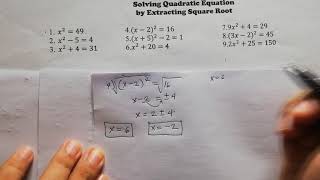 Solving Quadratic Equation
by Extracting Square Root
1. x² = 49
2. x² − 5 = 4
3. x² + 4 = 31
4.(x − 2)² = 16
5.(x + 5)² − 2 = 1
6.x² + 20 = 4
7.9x² + 4 = 29
8.(3x − 2)² = 45
9.2x² + 25 = 150
4) √(x-2)² = √16
x-2 = ±4
x = 2 ± 4
x = 6
x = -2